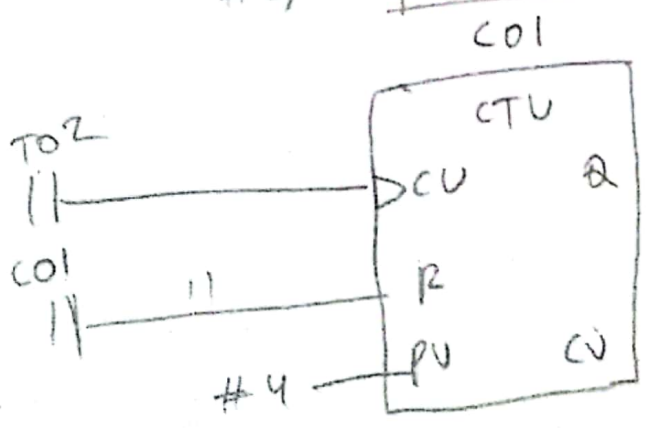 C01
CTU
T02
CU Q
C01
R
PV CV
#4